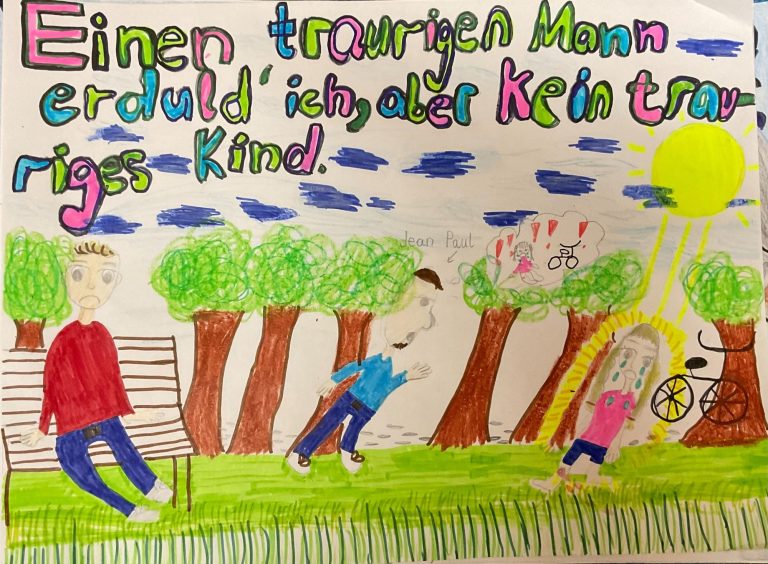 Einen traurigen Mann
erduld' ich, aber kein trau-
riges Kind.
Jean Paul
! ! ! !